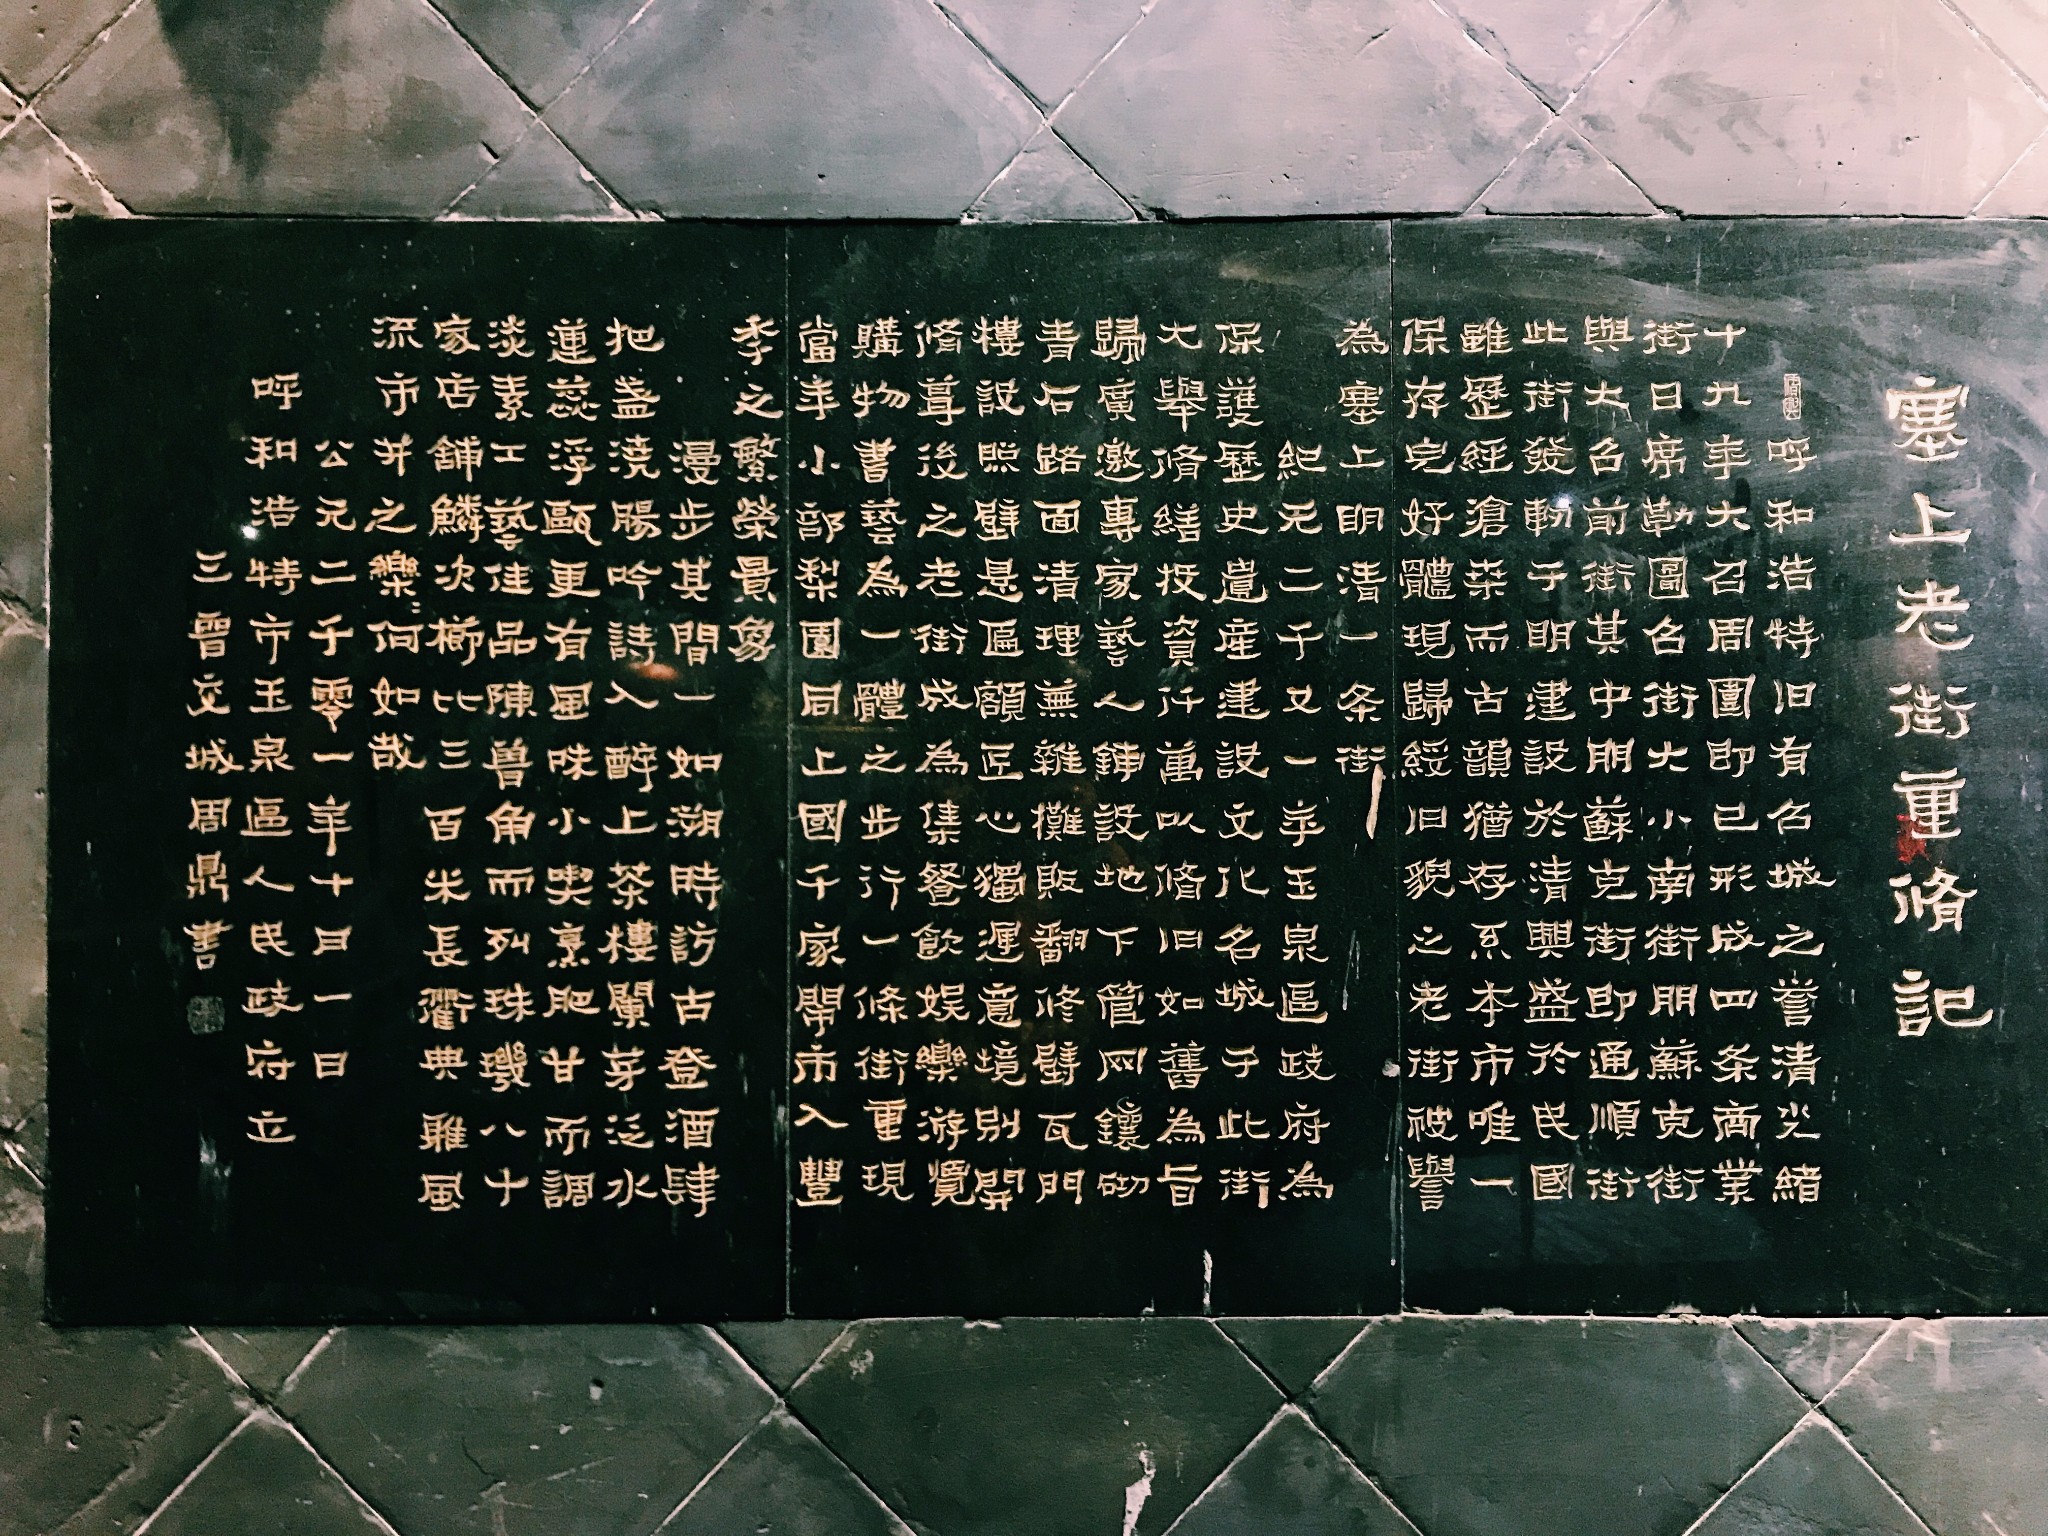 塞上老街重脩記
呼和浩特旧有名城之誉清光緒
十九年大召周圍即已形成四条商業
街曰席勒圖召街大小南街朋蘇克街
與大召前街其中朋蘇克街即通順街
此街發軔于明建設於清興盛於民國
雖歷經滄桑而古韻猶存系本市唯一
保存完好體現歸綏旧貌之老街被譽
為塞上明清一条街
紀元二千又一年玉泉區政府為
保護歷史遺産建設文化名城于此街
大舉脩繕投資仟萬以脩旧如舊為旨
歸廣邀專家藝人鋪設地下管网鑲砌
青石路面清理蕪雜攤販翻修壁瓦門
樓設照壁悬匾額匠心獨運意境別開
脩葺後之老街成為集餐飲娱樂游覽
購物書藝為一體之步行一條街重現
當年小部梨園同上國千家閙市入豐
季之繁榮景象
漫步其間一如溯時訪古登酒肆
把盏澆腸吟詩入醉上茶樓闌芽泛水
蓮蕊浮甌更有風味小喫烹肥甘而調
淡素工藝佳品陳兽角而列珠璣八十
家店舖鱗次櫛比三百米長衢典雅風
流市井之樂何如哉
公元二千零一年十月一日
呼和浩特市玉泉區人民政府立
三晉交城周鼎書